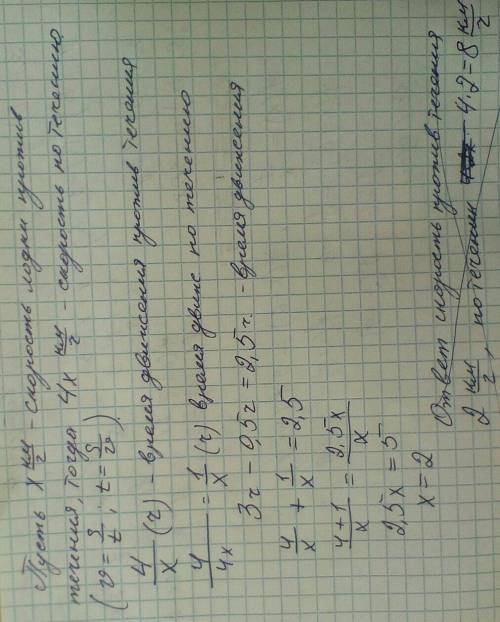 Пусть x км/г - скорость лодки против
течения, тогда 4x км/г - скорость по течению
(v = S/t ; t = S/v)
4/x (г) - время движения против течения
4/4x = 1/x (г) время движс по течению
3г - 0,5г = 2,5г. - время движения
4/x + 1/x = 2,5
4+1/x = 2,5x/x
2,5x = 5
x = 2
Ответ скорость против течения
2 км/г, по течении 4·2=8 км/г